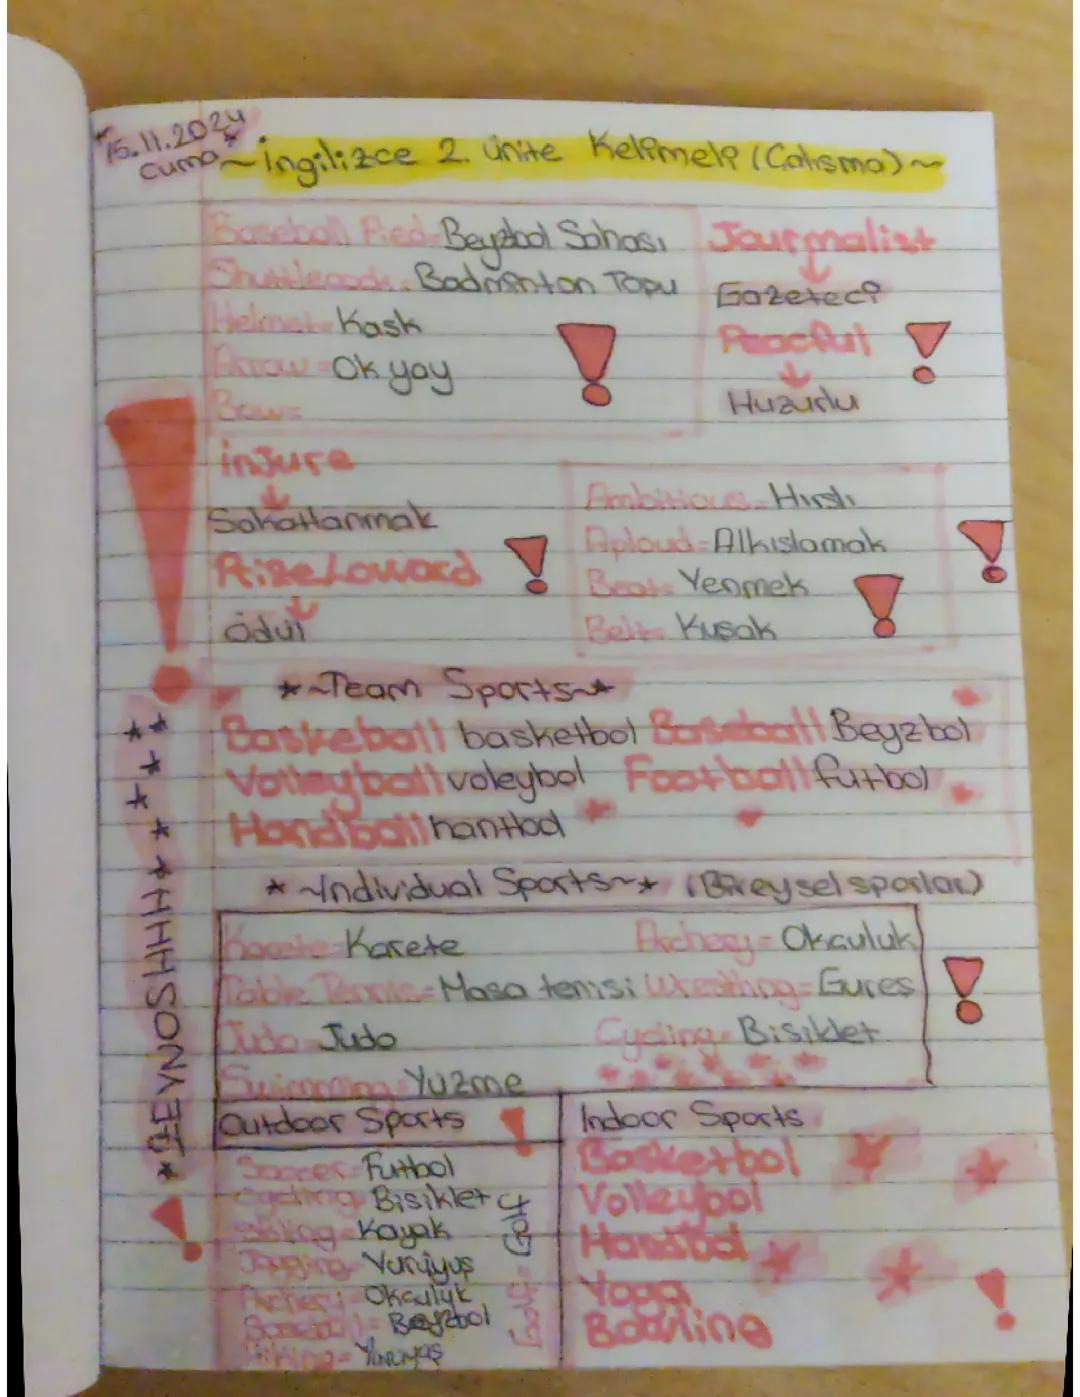 15.11.2024
cuma
~İngilizce 2. ünite Kelimeleri (Çalısma)~
Baseball Fied=Beyzbol Sahası
Shuttlecock=Badminton Topu
Helmet=Kask
Arrow=Ok yay
Bow=
Journalist
Gazeteci
Peacful
Huzurlu
injure
Sakatlanmak
Ödül
Ambitious=Hırslı
Aploud=Alkıslamak
Beat=Yenmek
Belt=Kuşak
*~Team Sports~*
Baskeball basketbol Baseball Beyzbol
Volleyball voleybol Football futbol
Handball hantbol
*~Individual Sports~* (Bireysel sporlar)
Karete=Karete Archery=Okculuk
Table Tennis=Masa tenisi Wrestling=Gures
Judo=Judo Cycling=Bisiklet
Swimming=Yuzme
Outdoor Sports
Soccer=Futbol
Cycling=Bisiklet
Kayak
Jogging=Yuruyus
Archery=Okculuk
Baseball=Beyzbol
Hiking=Yuruyus
Golf=Golf
Indoor Sports
Basketbol
Volleybol
Handbol
Yoga
Bowling